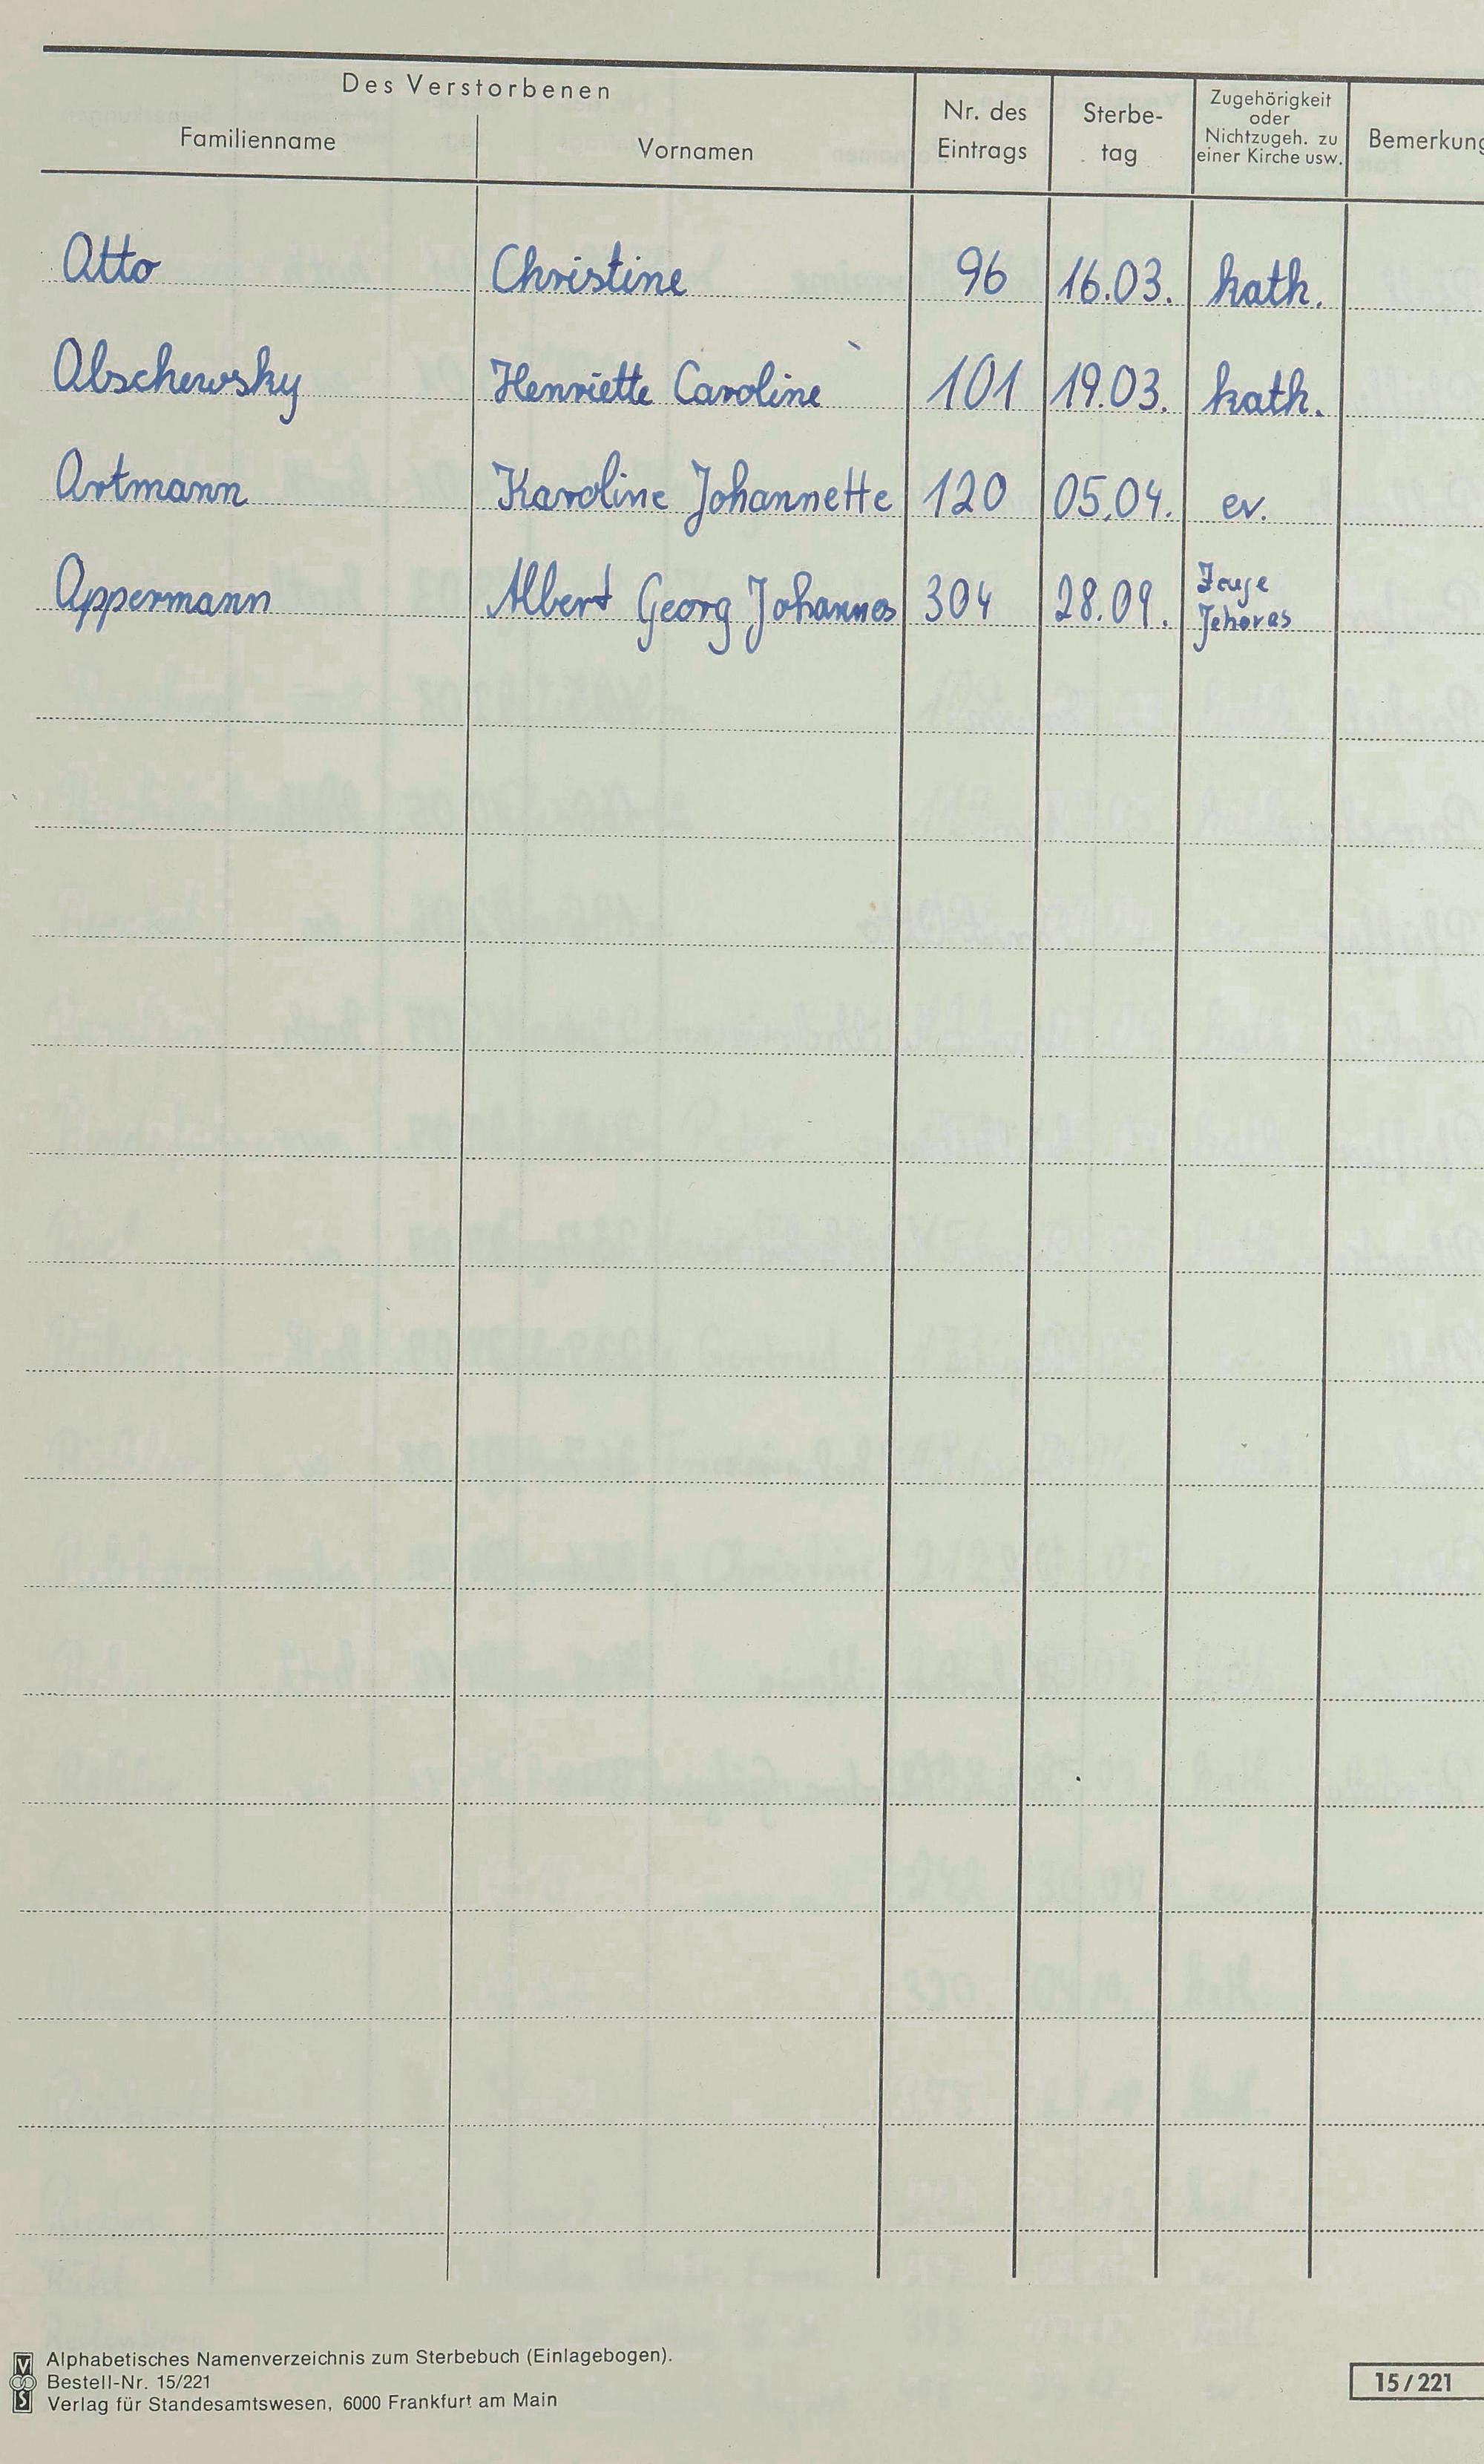 Des Verstorbenen
Familienname
Vornamen
Nr. des
Eintrags
Sterbe-
tag
Zugehörigkeit
oder
Nichtzugeh. zu
einer Kirche usw.
Bemerkung
Atto Christine 96 16.03. kath.
Abschewsky Henriette Caroline 101 19.03. kath.
Artmann Karoline Johannette 120 05.04. ev.
Appermann Albert Georg Johannes 304 28.09. Zeuge
Jehovas
Alphabetisches Namenverzeichnis zum Sterbebuch (Einlagebogen).
Bestell-Nr. 15/221
Verlag für Standesamtswesen, 6000 Frankfurt am Main
15/221